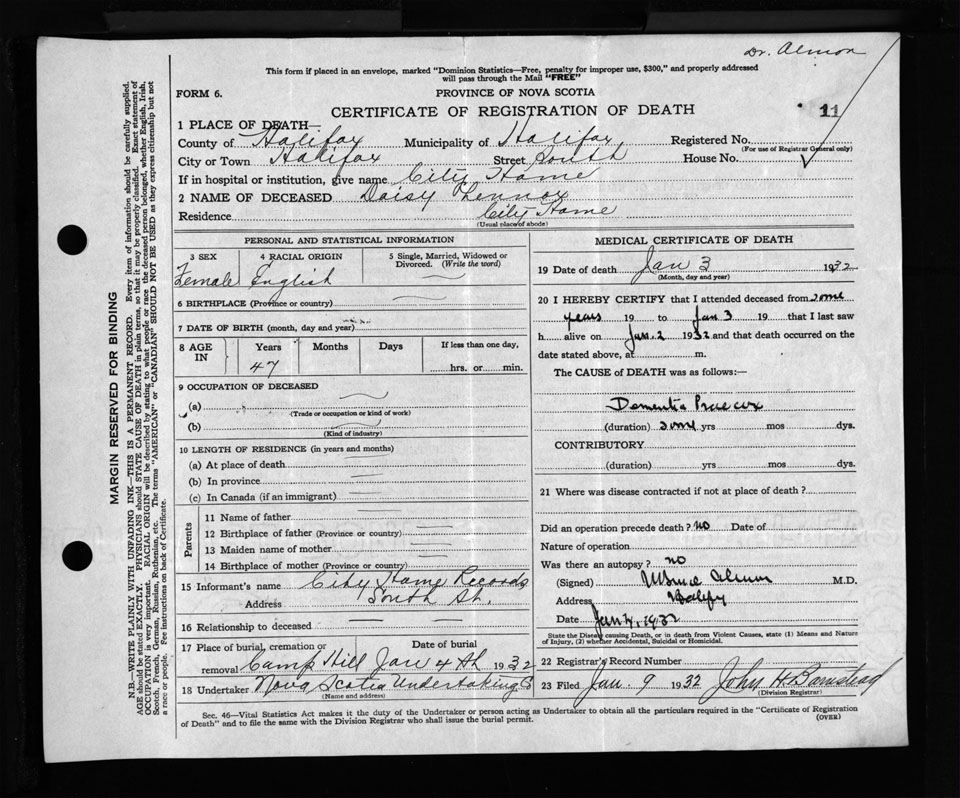 Dr. Almon
This form if placed in an envelope, marked "Dominion Statistics—Free, penalty for improper use, $300," and properly addressed
will pass through the Mail "FREE"
FORM 6.
PROVINCE OF NOVA SCOTIA
CERTIFICATE OF REGISTRATION OF DEATH
11
1 PLACE OF DEATH—
County of Halifax Municipality of Halifax Registered No.
(For use of Registrar General only)
City or Town Halifax Street South House No.
If in hospital or institution, give name City Home
2 NAME OF DECEASED Daisy Lennox
Residence City Home
(Usual place of abode)
PERSONAL AND STATISTICAL INFORMATION
3 SEX 4 RACIAL ORIGIN 5 Single, Married, Widowed or
Divorced. (Write the word)
Female English
6 BIRTHPLACE (Province or country)
7 DATE OF BIRTH (month, day and year)
8 AGE IN Years Months Days If less than one day,
47 hrs. or min.
9 OCCUPATION OF DECEASED
(a)
(Trade or occupation or kind of work)
(b)
(Kind of industry)
10 LENGTH OF RESIDENCE (in years and months)
(a) At place of death
(b) In province
(c) In Canada (if an immigrant)
Parents
11 Name of father
12 Birthplace of father (Province or country)
13 Maiden name of mother
14 Birthplace of mother (Province or country)
15 Informant's name City Home Records
Address South St.
16 Relationship to deceased
17 Place of burial, cremation or Date of burial
removal Camp Hill Jan 4th 1932
18 Undertaker Nova Scotia Undertaking Co
(Name and address)
MEDICAL CERTIFICATE OF DEATH
19 Date of death Jan 3 1932
(Month, day and year)
20 I HEREBY CERTIFY that I attended deceased from some
years 19 to Jan 3 19 that I last saw
h alive on Jan. 2 1932 and that death occurred on the
date stated above, at m.
The CAUSE of DEATH was as follows:—
Dementia Praecox
(duration) some yrs mos dys.
CONTRIBUTORY
(duration) yrs mos dys.
21 Where was disease contracted if not at place of death?
Did an operation precede death? no Date of
Nature of operation
Was there an autopsy? no
(Signed) Almon M.D.
Address Halifax
Date Jan 4, 1932
State the Disease causing Death, or in death from Violent Causes, state (1) Means and Nature
of Injury, (2) whether Accidental, Suicidal or Homicidal.
22 Registrar's Record Number
23 Filed Jan. 9 1932 John H Barnstead
(Division Registrar)
Sec. 46—Vital Statistics Act makes it the duty of the Undertaker or person acting as Undertaker to obtain all the particulars required in the "Certificate of Registration
of Death" and to file the same with the Division Registrar who shall issue the burial permit.
(OVER)
MARGIN RESERVED FOR BINDING
N.B. WRITE PLAINLY WITH UNFADING INK—THIS IS A PERMANENT RECORD. Every item of information should be carefully supplied.
AGE should be stated EXACTLY. PHYSICIANS should STATE CAUSE OF DEATH in plain terms, so that it may be properly classified. Exact statement of
OCCUPATION is very important. RACIAL ORIGIN will be described by stating to what people or race the deceased person belonged, whether English, Irish,
Scotch, French, German, Russian, Ruthenian, etc. The terms "AMERICAN" or "CANADIAN" SHOULD NOT BE USED as they express citizenship but not
a race or people. Fee instructions on back of Certificate.